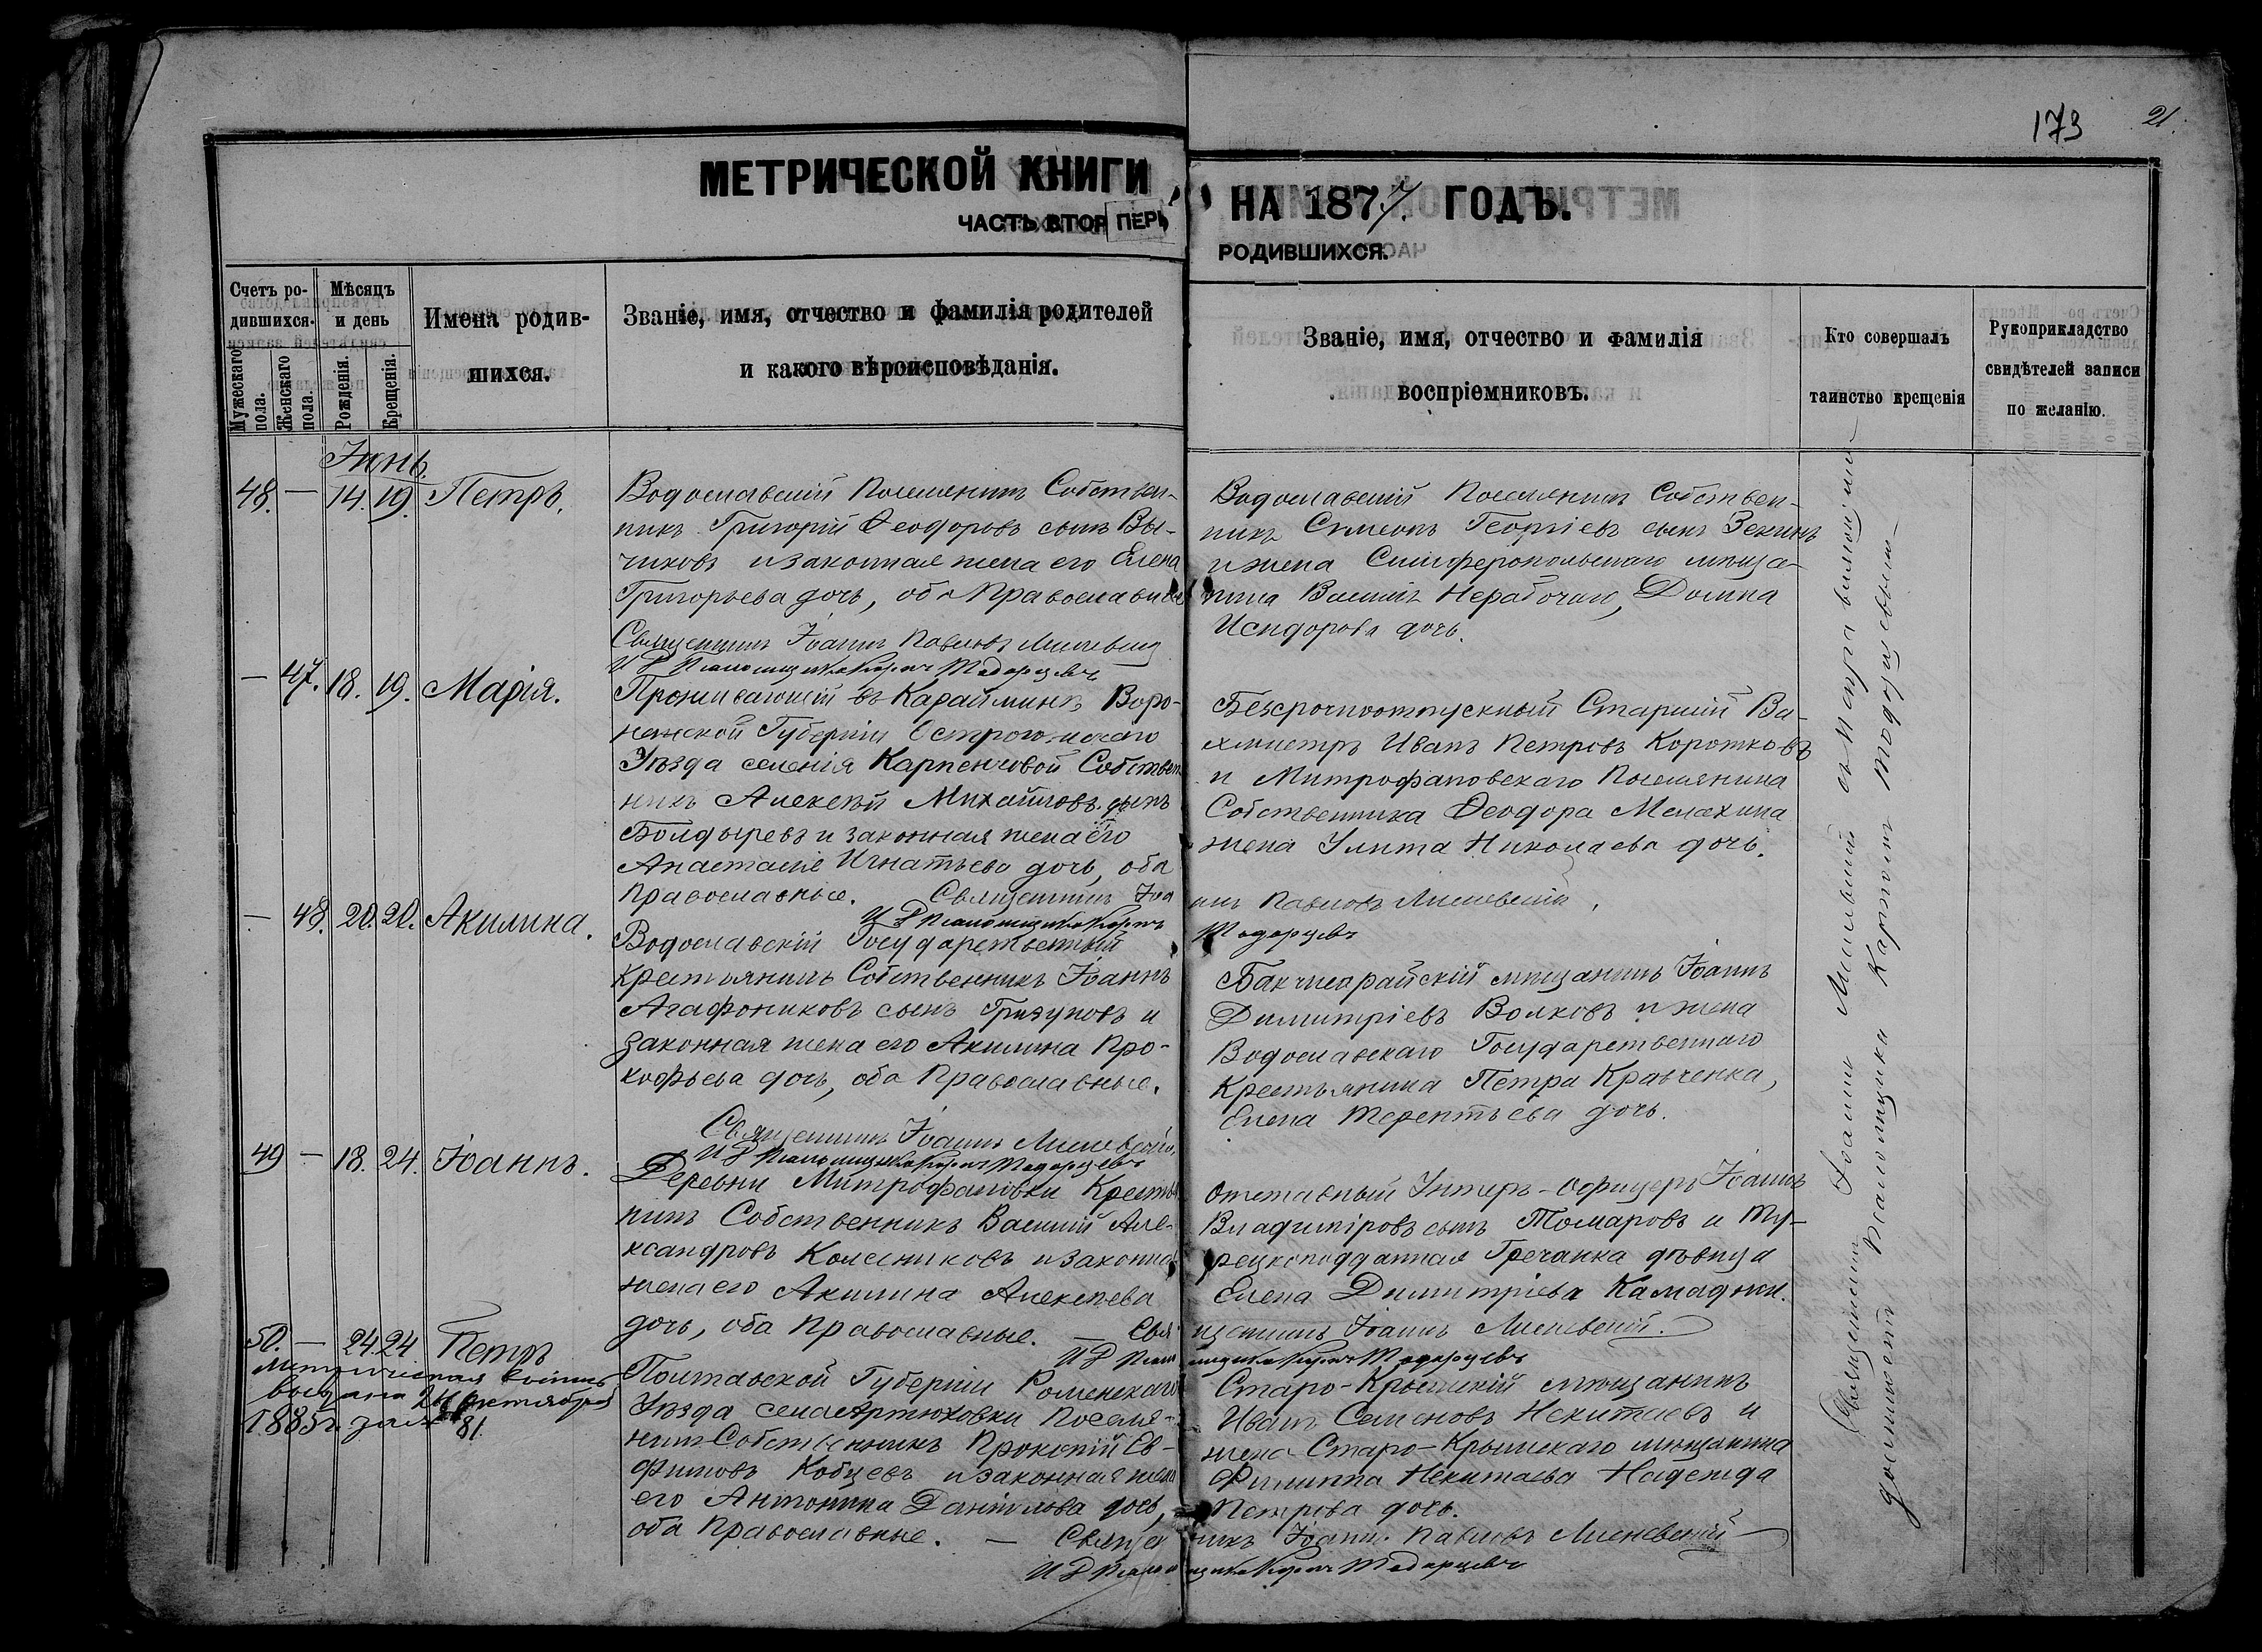 173 21.
МЕТРИЧЕСКОЙ КНИГИ НА 1877. ГОДЪ.
ЧАСТЬ ПЕРВ РОДИВШИХСЯ.
Счетъ ро-
дившихся.
Мужескаго пола.
Женскаго пола.
Мѣсяцъ
и день
Рожденія.
Крещенія.
Имена родив-
шихся.
Званіе, имя, отчество и фамилія родителей
и какого вѣроисповѣданія.
Званіе, имя, отчество и фамилія
воспріемниковъ.
Кто совершалъ
таинство крещенія
Рукоприкладство
свидѣтелей записи
по желанію.
Іюнь.
48. — 14. 19. Петръ.
Водославскій Поселянинъ Собствен-
никъ Григорій Ѳеодоровъ сынъ Вы-
чиковъ и законная жена его Елена
Григорьева дочь, оба Православные
Священникъ Іоаннъ Павловъ
Водославскій Поселянинъ Собствен-
никъ Симеонъ Георгіевъ сынъ Зекинъ
и жена Симферопольскаго мѣща-
нина Домна
Исидорова дочь.
— 47. 18. 19. Марія.
Проживающій въ Воро-
нежской Губерніи Острогожскаго
Уѣзда селенія Карпенковой Собствен
никъ Алексѣй Михайловъ сынъ
Болдыревъ и законная жена его
Анастасія Игнатьева дочь, оба
Православные. Священникъ Іоа
Безсрочноотпускный Старшій Ва-
хмистръ Иванъ Петровъ Коротковъ
и Митрофановскаго Поселянина
Собственника Ѳеодора Мелахина
жена Улита Николаева дочь.
ннъ Павловъ
— 48. 20. 20. Акилина.
Водославскій Государственный
Крестьянинъ Собственникъ Іоаннъ
Агафониковъ сынъ Гризуновъ и
законная жена его Акилина Про-
кофьева дочь, оба Православные.
Священникъ Іоаннъ
Бакчисарайскій мѣщанинъ Іоаннъ
Димитріевъ Волковъ и жена
Водославскаго Государственнаго
Крестьянина Петра Кравченка,
Елена Терентьева дочь.
49 — 18. 24. Іоаннъ.
Деревни Митрофановки Крестья
нинъ Собственникъ Василій Але-
ксандровъ Колесниковъ и законная
жена его Акилина Алексѣева
дочь, оба Православные. — Свя
Отставный Унтеръ-Офицеръ Іоаннъ
Владиміровъ сынъ Томаровъ и Ту-
рецкоподданная Гречанка дѣвица
Елена Димитріева
щенникъ Іоаннъ
50. — 24 24 Петръ
выдана
1885 г. за № 81
Полтавской Губерніи Роменскаго
Уѣзда села Артюховки Поселя-
нинъ Собственникъ Прокопій Ев-
фимовъ Кобцевъ и законная жена
его Антонина Даніилова дочь,
оба Православные. — Священ
Старо-Крымскій мѣщанинъ
Иванъ Семеновъ Некитаевъ и
жена Старо-Крымскаго мѣщанина
Филиппа Некитаева Надежда
Петрова дочь.
никъ Іоаннъ Павловъ
Священникъ Іоаннъ